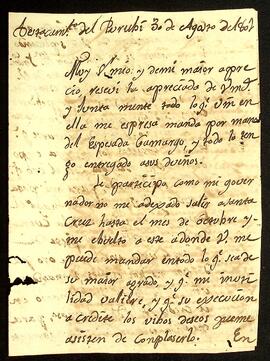 del Purubi 30 de Agosto de
Muy S. mio, y de mi maior apre
cio, resevi la apreciada de Vmd
y Junta mente todo lo q.e Vm en
ella me espresa manda por mano
del Espesada Camargo, y todo lo ten
go entregado a sus dueños.
Le partisipo como mi gover
nador no me a dexado salir a Santa
Cruz hasta el mes de octubre y
me ebuelto a este adonde V. me
puede mandar entodo lo q.e sea de
su maior agrado, y q.e mi inuti
lidad valiere, y q.e su execucion
acredite los vibos deseos que me
asisten de conplaserlo.
En